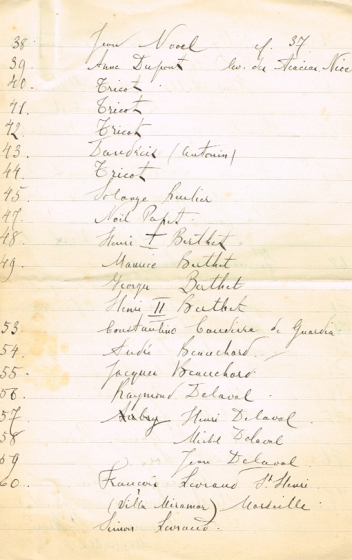 38. Jean Noel cf. 37
39 Anne Dupont Av. des Acacias Nice
40. Tricot
41. Tricot
42 Tricot
43. (Antonin)
44. Tricot
45. Solange
47. Noël
48. Henri I Berthet
49. Maurice Berthet
Georges Berthet
Henri II Berthet
53 Constantino de Guardia
54. André Beauchard
55 Jacques Beauchard
56. Raymond Delaval
57 Henri Delaval
58 Michel Delaval
59 Jean Delaval
60. François St Henri
(Villa Miramar) Marseille
Simon